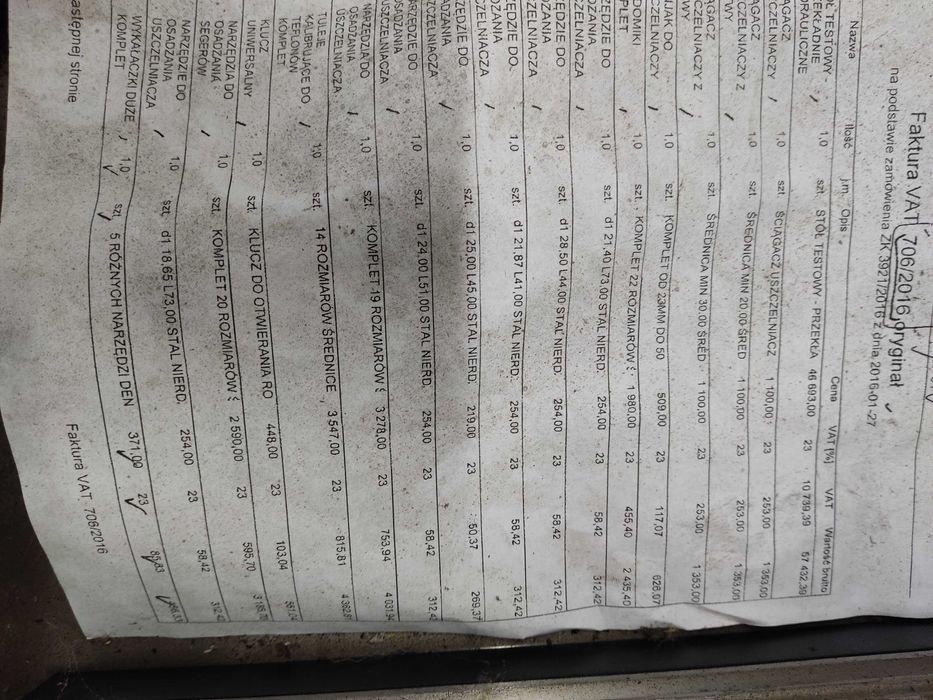 Faktura VAT 706/2016 oryginał
na podstawie zamówienia ZK 3921/2016 z dnia 2016-01-27
Nazwa Ilość j.m. Opis Cena VAT [%] VAT Wartość brutto
ÓŁ TESTOWY - 1,0 szt. STÓŁ TESTOWY - PRZEKŁA 46 693,00 23 10 739,39 57 432,39
EKŁADNIE
DRAULICZNE
ĄGACZ 1,0 szt. ŚCIĄGACZ USZCZELNIACZ 1 100,00 23 253,00 1 353,00
CZELNIACZY
ĄGACZ 1,0 szt. ŚREDNICA MIN 20.00 ŚRED 1 100,00 23 253,00 1 353,00
CZELNIACZY Z
WY
ĄGACZ 1,0 szt. ŚREDNICA MIN 30.00 ŚRED 1 100,00 23 253,00 1 353,00
CZELNIACZY Z
WY
JAK DO 1,0 szt. KOMPLET OD 23MM DO 50 509,00 23 117,07 626,07
CZELNIACZY
DOMIKI 1,0 szt. KOMPLET 22 ROZMIARÓW 1 980,00 23 455,40 2 435,40
PLET
ZĘDZIE DO 1,0 szt. d1 21,40 L73,00 STAL NIERD. 254,00 23 58,42 312,42
ADZANIA
ZCZELNIACZA
ZĘDZIE DO 1,0 szt. d1 28,50 L44,00 STAL NIERD. 254,00 23 58,42 312,42
ADZANIA
ZCZELNIACZA
ZĘDZIE DO 1,0 szt. d1 21,87 L41,00 STAL NIERD. 254,00 23 58,42 312,42
DZANIA
ZCZELNIACZA
RZĘDZIE DO 1,0 szt. d1 25,00 L45,00 STAL NIERD. 219,00 23 50,37 269,37
ADZANIA
ZCZELNIACZA
ARZĘDZIE DO 1,0 szt. d1 24,00 L51,00 STAL NIERD. 254,00 23 58,42 312,4
SADZANIA
USZCZELNIACZA
NARZĘDZIA DO 1,0 szt. KOMPLET 19 ROZMIARÓW 3 278,00 23 753,94 4 031,94
OSADZANIA
USZCZELNIACZA
TULEJE 1,0 szt. 14 ROZMIARÓW ŚREDNICE 3 547,00 23 815,81 4 362,8
KALIBRUJĄCE DO
TEFLONÓW
KOMPLET
KLUCZ 1,0 szt. KLUCZ DO OTWIERANIA RO 448,00 23 103,04
UNIWERSALNY
NARZĘDZIA DO 1,0 szt. KOMPLET 20 ROZMIARÓW 2 590,00 23 595,70
OSADZANIA
SEGERÓW
NARZĘDZIE DO 1,0 szt. d1 18,65 L73,00 STAL NIERD. 254,00 23 58,42 312,4
OSADZANIA
USZCZELNIACZA
WYKAŁACZKI DUŻE 1,0 szt. 5 RÓŻNYCH NARZĘDZI DEN 371,00 23 85,33
KOMPLET
astępnej stronie Faktura VAT 706/2016